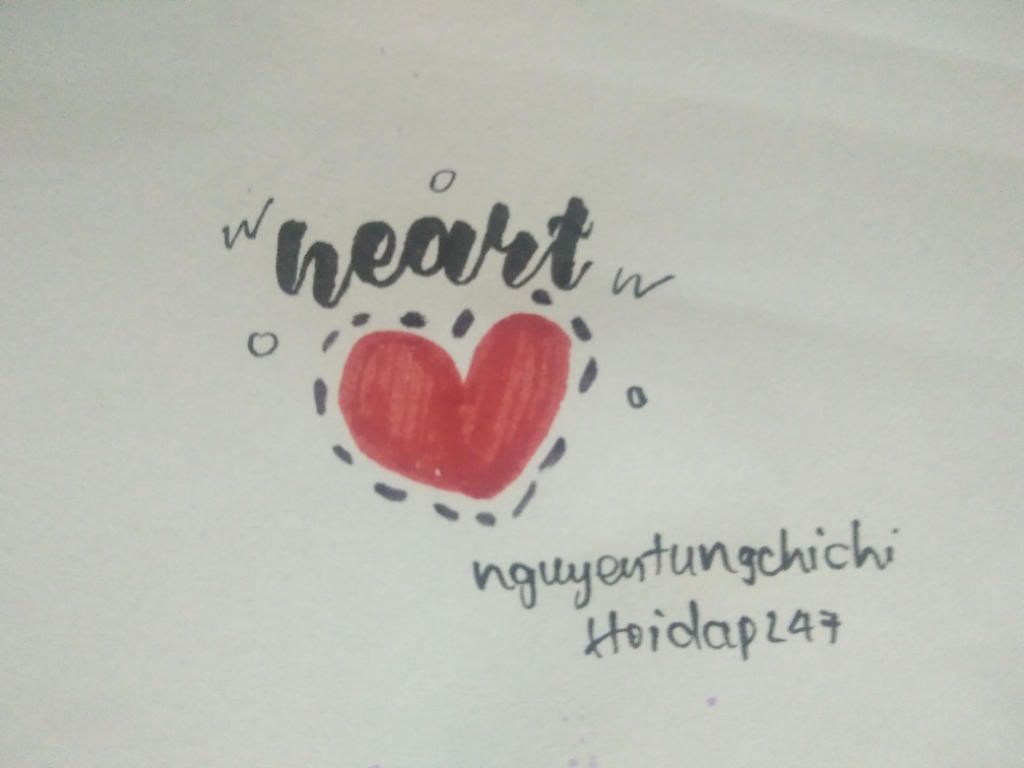 heart
nguyentungchichi
Hoidap247